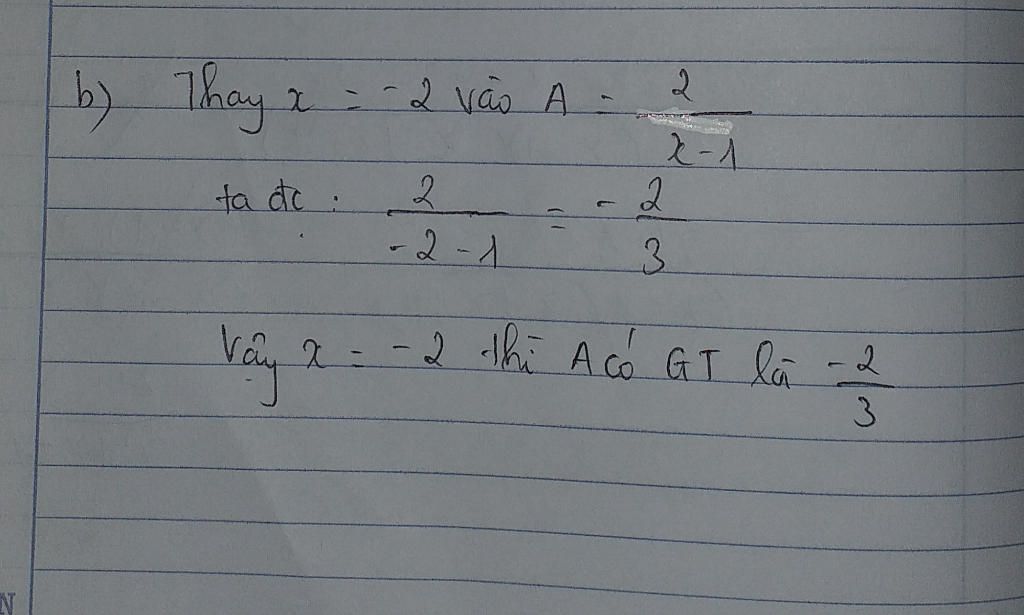 b) Thay x = -2 vào A = 2/(x-1)
ta đc : 2/(-2-1) = -2/3
Vậy x = -2 thì A có GT là -2/3
N